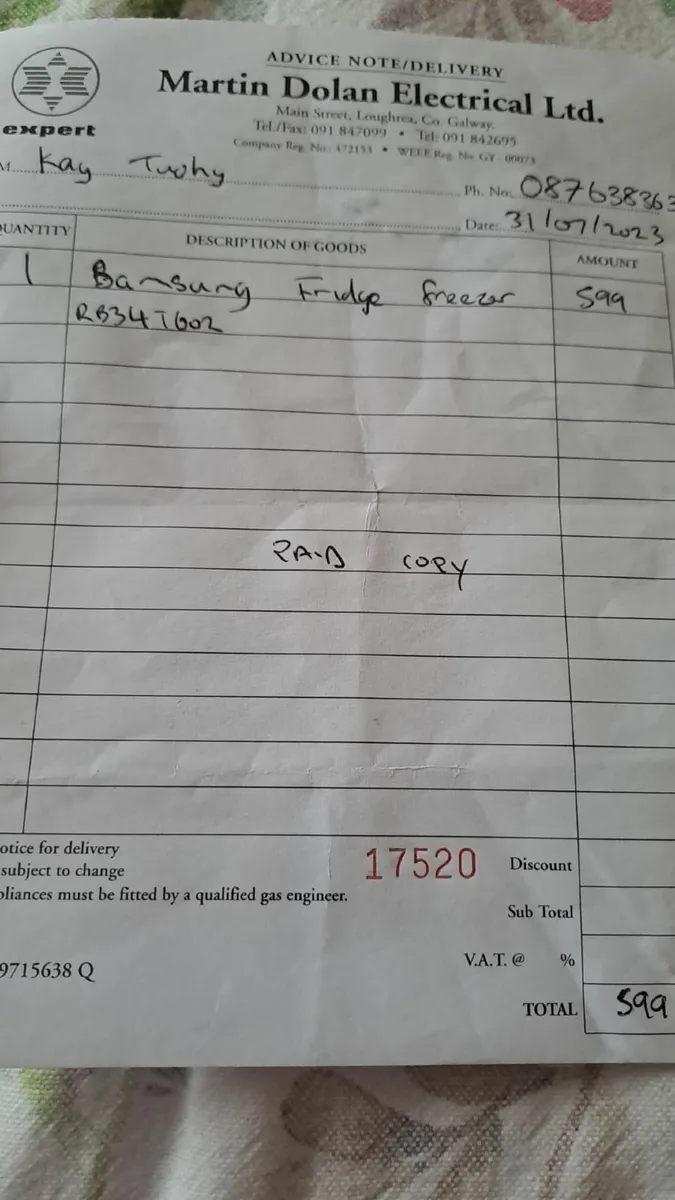 ADVICE NOTE/DELIVERY
Martin Dolan Electrical Ltd.
Main Street, Loughrea, Co. Galway.
Tel./Fax: 091 847099 • Tel: 091 842695
Company Reg. No. 472153 • WEEE Reg. No. GY - 00073
expert
M Kay Tuohy
Ph. No: 087638363
Date: 31/07/2023
QUANTITY DESCRIPTION OF GOODS AMOUNT
1 Bamsung Fridge freezer 599
RB34T602
PAID COPY
otice for delivery
subject to change
pliances must be fitted by a qualified gas engineer.
17520
Discount
Sub Total
V.A.T. @ %
9715638 Q
TOTAL 599